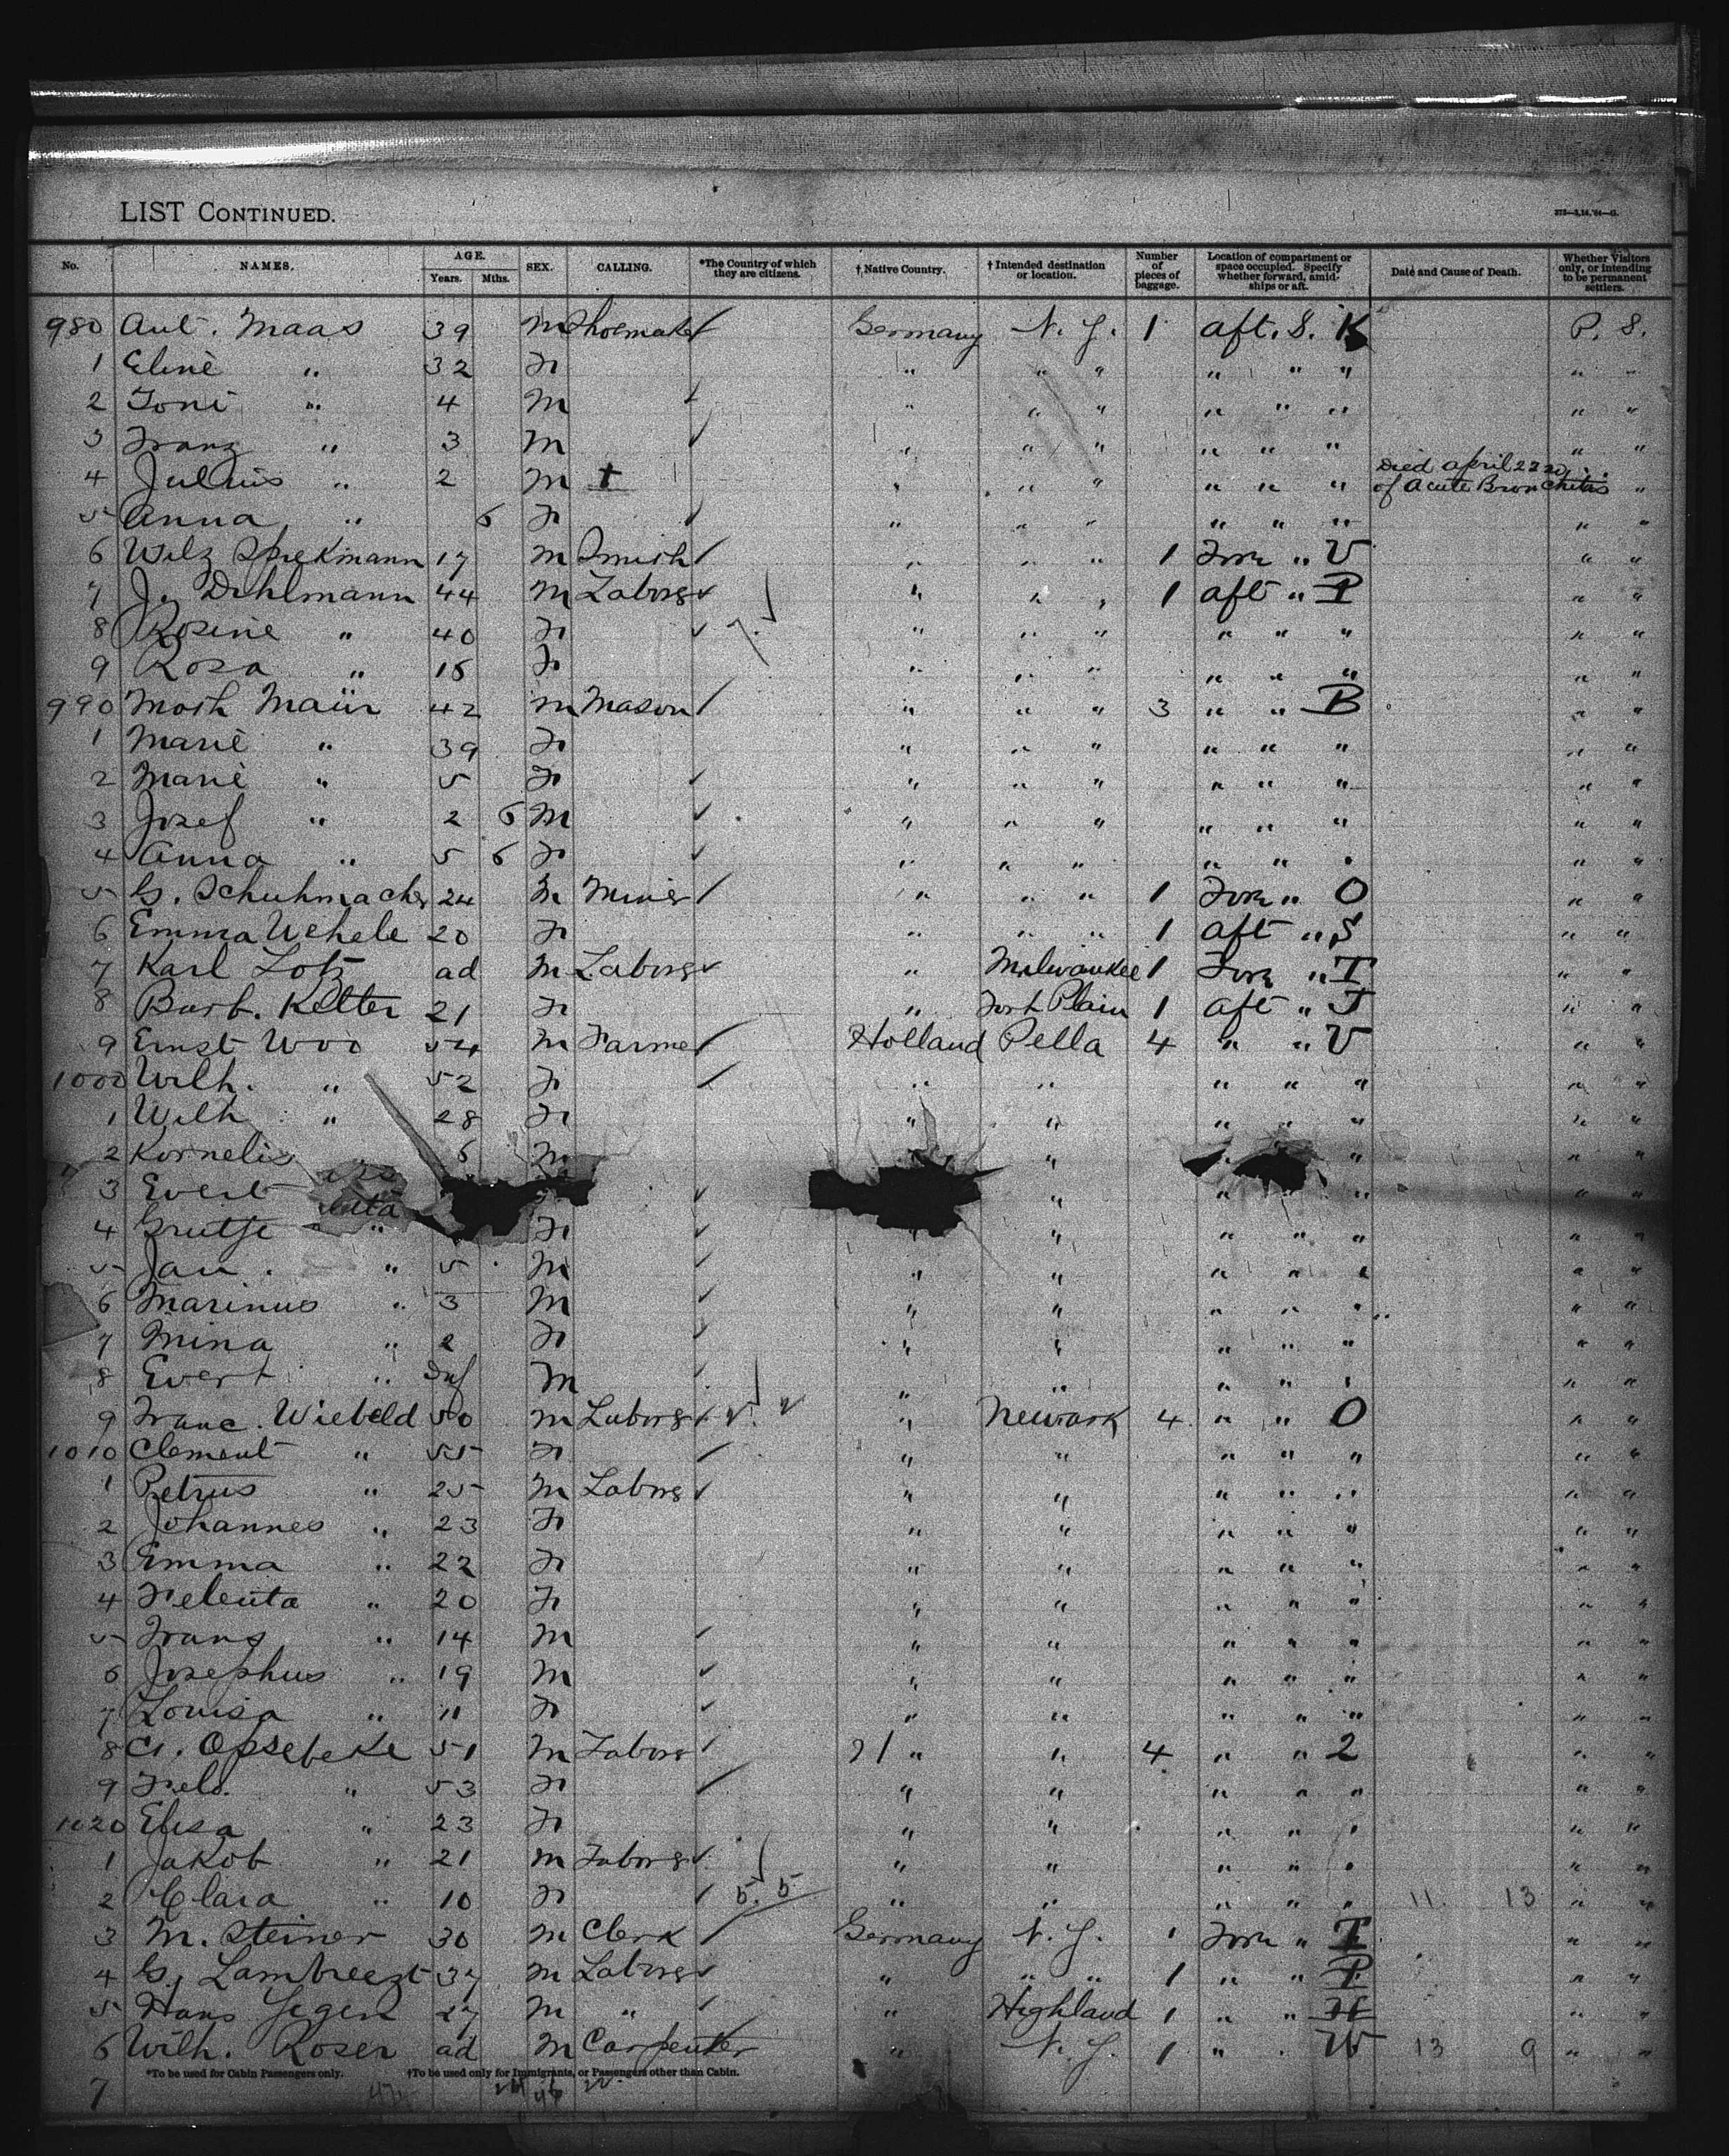 LIST CONTINUED.
No. NAMES. AGE. Years. Mths. SEX. CALLING. *The Country of which they are citizens. † Native Country. † Intended destination or location. Number of pieces of baggage. Location of compartment or space occupied. Specify whether forward, amidships or aft. Date and Cause of Death. Whether Visitors only, or intending to be permanent settlers.
980 Ant. Maas 39 M Shoemaker Germany N. Y. 1 aft. S. K P. S.
1 Eline " 32 F " " " " " " " "
2 Toni " 4 M " " " " " " " "
3 Franz " 3 M " " " " " " " "
4 Julius " 2 M † " " " " " " Died april 22nd of acute Bronchitis " "
5 Anna " 6 F " " " " " " " "
6 Wilz Spiekmann 17 M Smith " " " 1 Forw " V " "
7 J. Dihlmann 44 M Labors " " " 1 aft " P " "
8 Rosine " 40 F " " " " " " " "
9 Rosa " F " " " " " " " "
990 Math Maür 42 M Mason " " " 3 " " B " "
1 Marie " 39 F " " " " " " " "
2 Marie " 5 F " " " " " " " "
3 Josef " 2 6 M " " " " " " " "
4 Anna " 5 6 F " " " " " " " "
5 G. Schuhmacher 24 M Miner " " " 1 Forw " O " "
6 Emma Wehele 20 F " " " 1 aft " S " "
7 Karl Lotz ad M Labors " Milwaukee 1 Forw " T " "
8 Barb. Ketter 21 F " Fort Plain 1 aft " T " "
9 Ernst Woo 54 M Farmer Holland Pella 4 " " V " "
1000 Wilh. " 52 F " " " " " " "
1 Wilh " 28 F " " " " " " "
2 Kornelis 6 M " " " "
3 Evert " " " " " "
4 Grutje " F " " " " " "
5 Jan " 5 M " " " " " " "
6 Marinus " 3 M " " " " " " "
7 Mina " 2 F " " " " " " "
8 Evert " Inf M " " " " " " "
9 Franc. Wiebeld 50 M Labors " Newark 4 " " O " "
1010 Clement " 55 F " " " " " " "
1 Petrus " 25 M Labors " " " " " " "
2 Johannes " 23 F " " " " " " "
3 Emma " 22 F " " " " " " "
4 " 20 F " " " " " " "
5 Frans " 14 M " " " " " " "
6 Josephus " 19 M " " " " " " "
7 Louisa " 11 F " " " " " " "
8 51 M Labors " " 4 " " 2 " "
9 " 53 F " " " " " " "
1020 Elisa " 23 F " " " " " " "
1 Jakob " 21 M Labors " " " " " " "
2 Clara " 10 F 5. 5 " " " " " 11 13 " "
3 M. Steiner 30 M Clerk Germany N. Y. 1 Forw " T " "
4 G. Lambreezt 37 M Labors " " " 1 " " P " "
5 Hans 27 M " " Highland 1 " " H " "
6 Wilh. Roser ad M Carpenter " N. Y. 1 " " W 13 9 " "
*To be used for Cabin Passengers only. †To be used only for Immigrants, or Passengers other than Cabin.
7